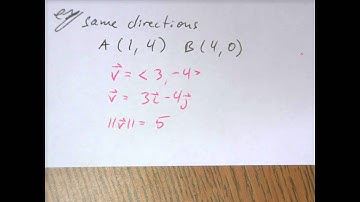 eg same directions
A (1, 4) B (4, 0)
v⃗ = < 3, -4 >
v⃗ = 3i⃗ - 4j⃗
||v⃗|| = 5